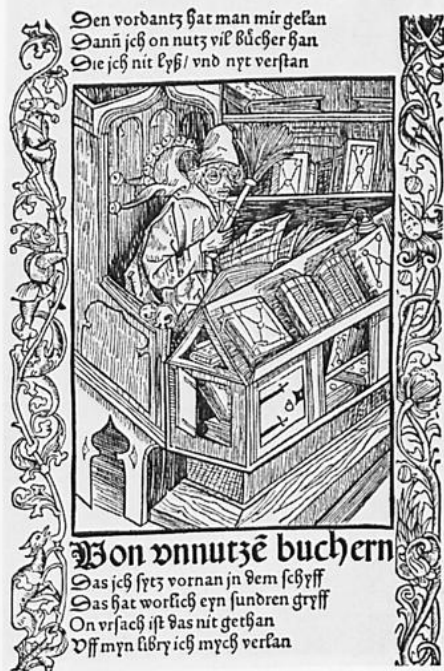 Den vordantz hat man mir gelan
Dann̄ jch on nutz vil bůcher han
Die jch nit lyß/ vnd nyt verstan
Von vnnutzē buchern
Das jch sytz vornan jn dem schyff
Das hat worlich eyn sundren gryff
On vrsach ist das nit gethan
Vff myn libry ich mych verlan